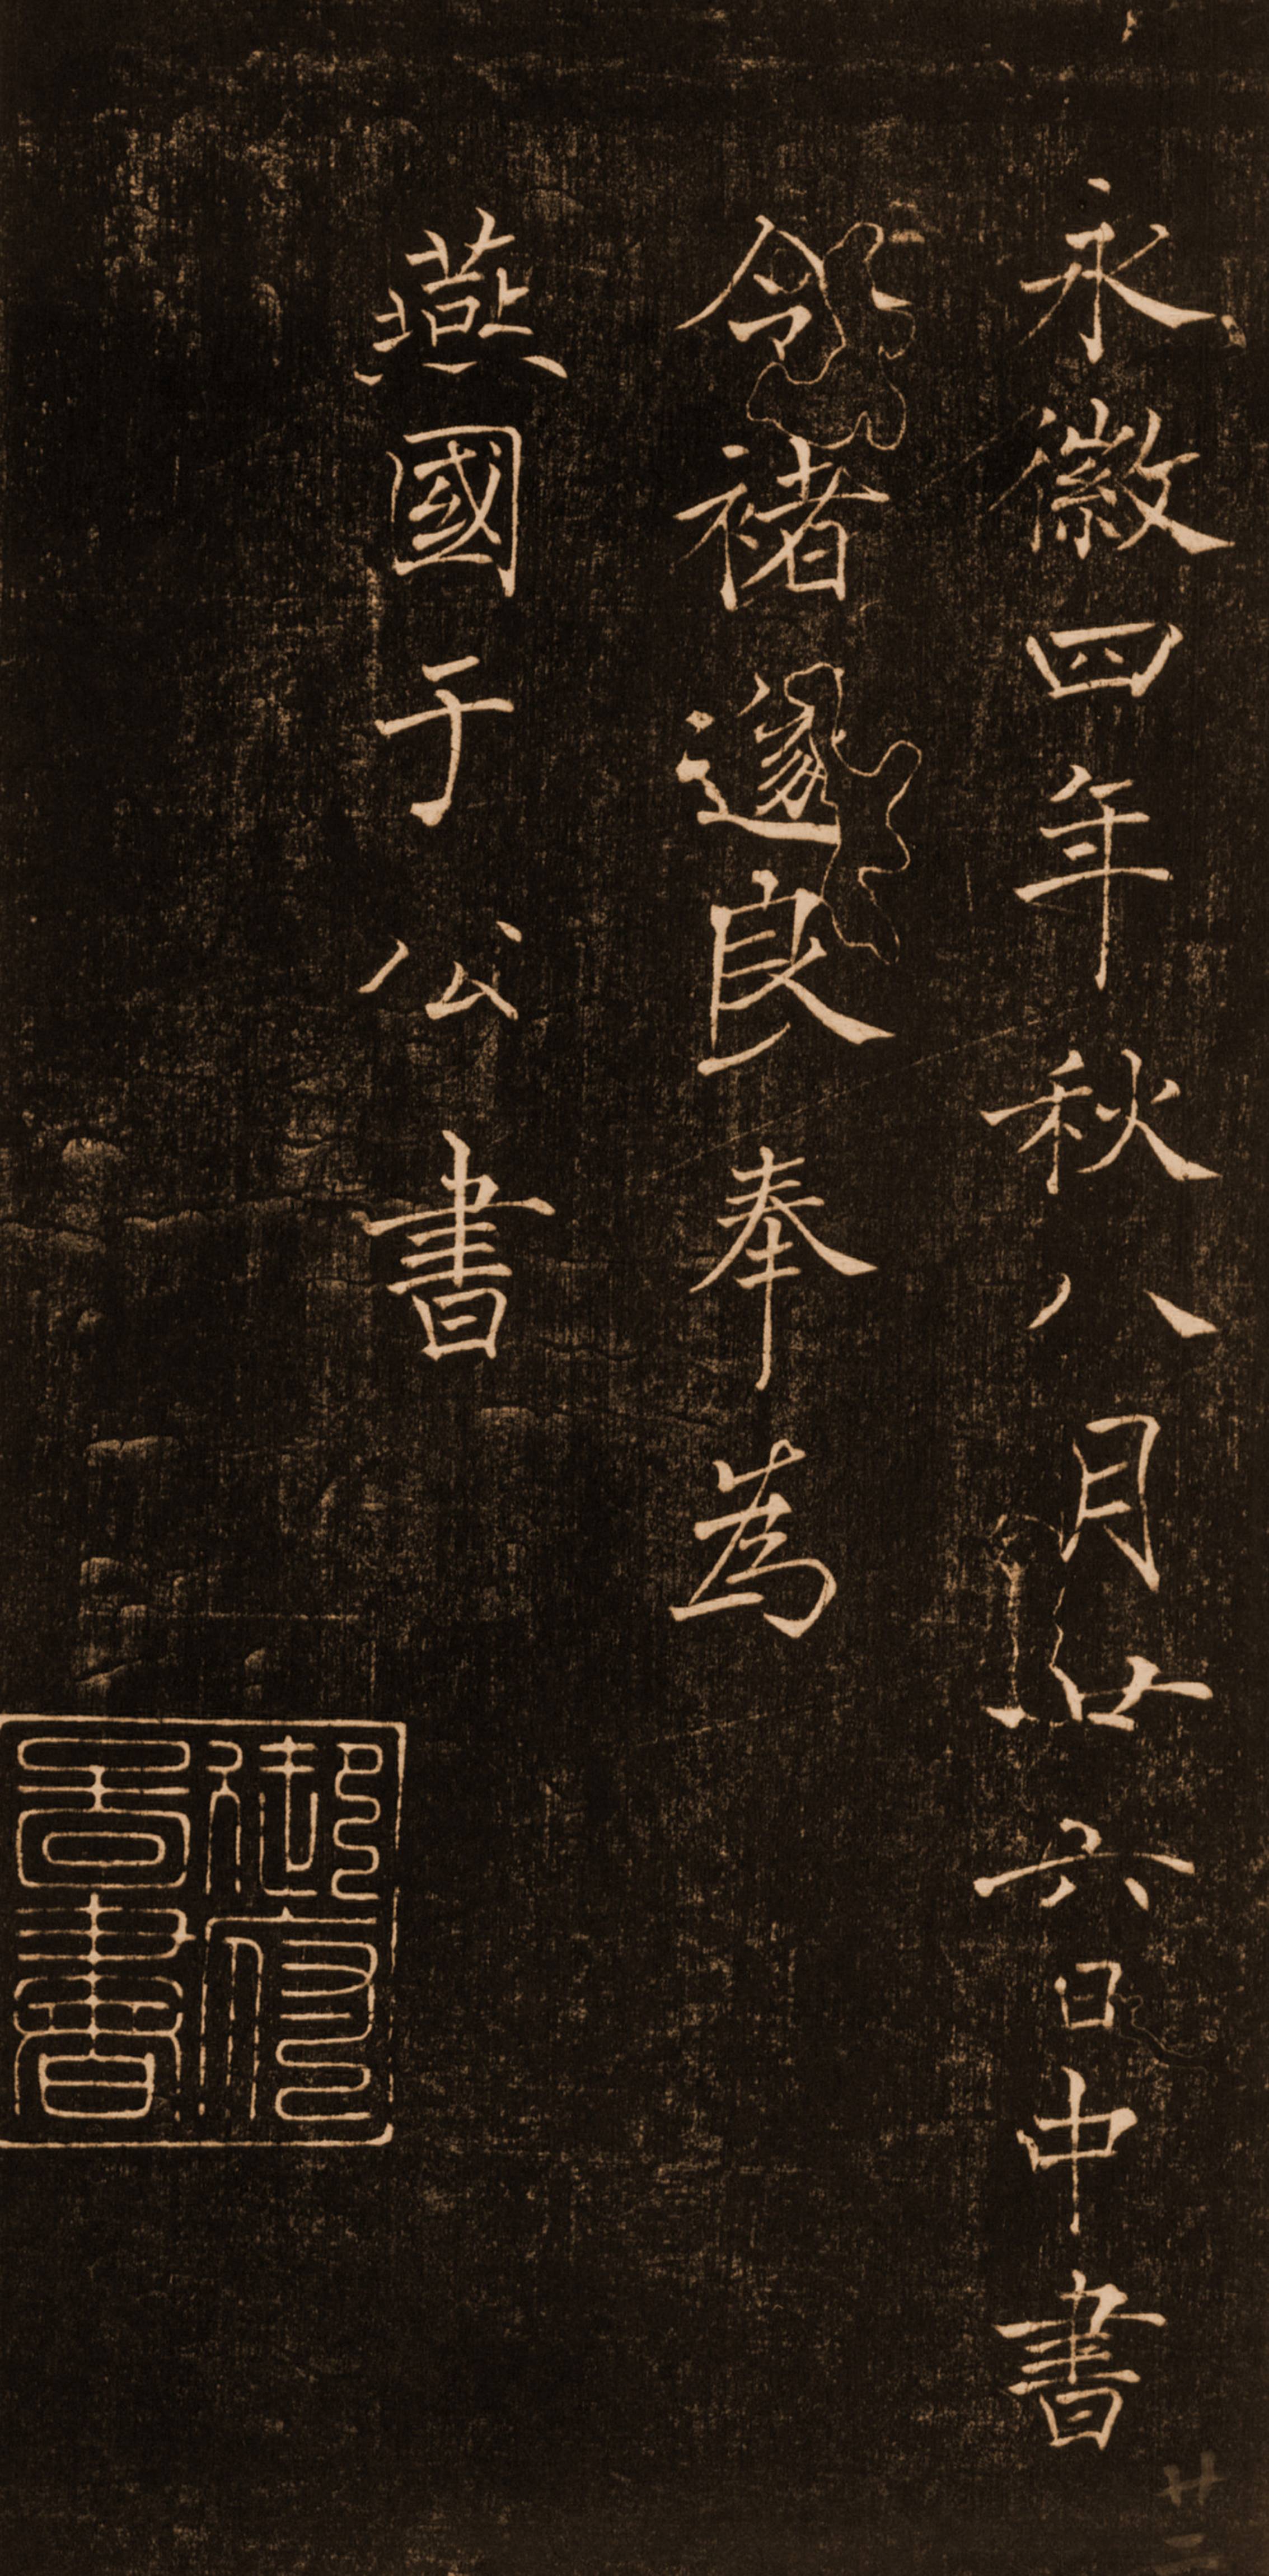 永徽四年秋八月廿六日中書
令褚遂良奉為
燕國于公書
御府
圖書
廿三